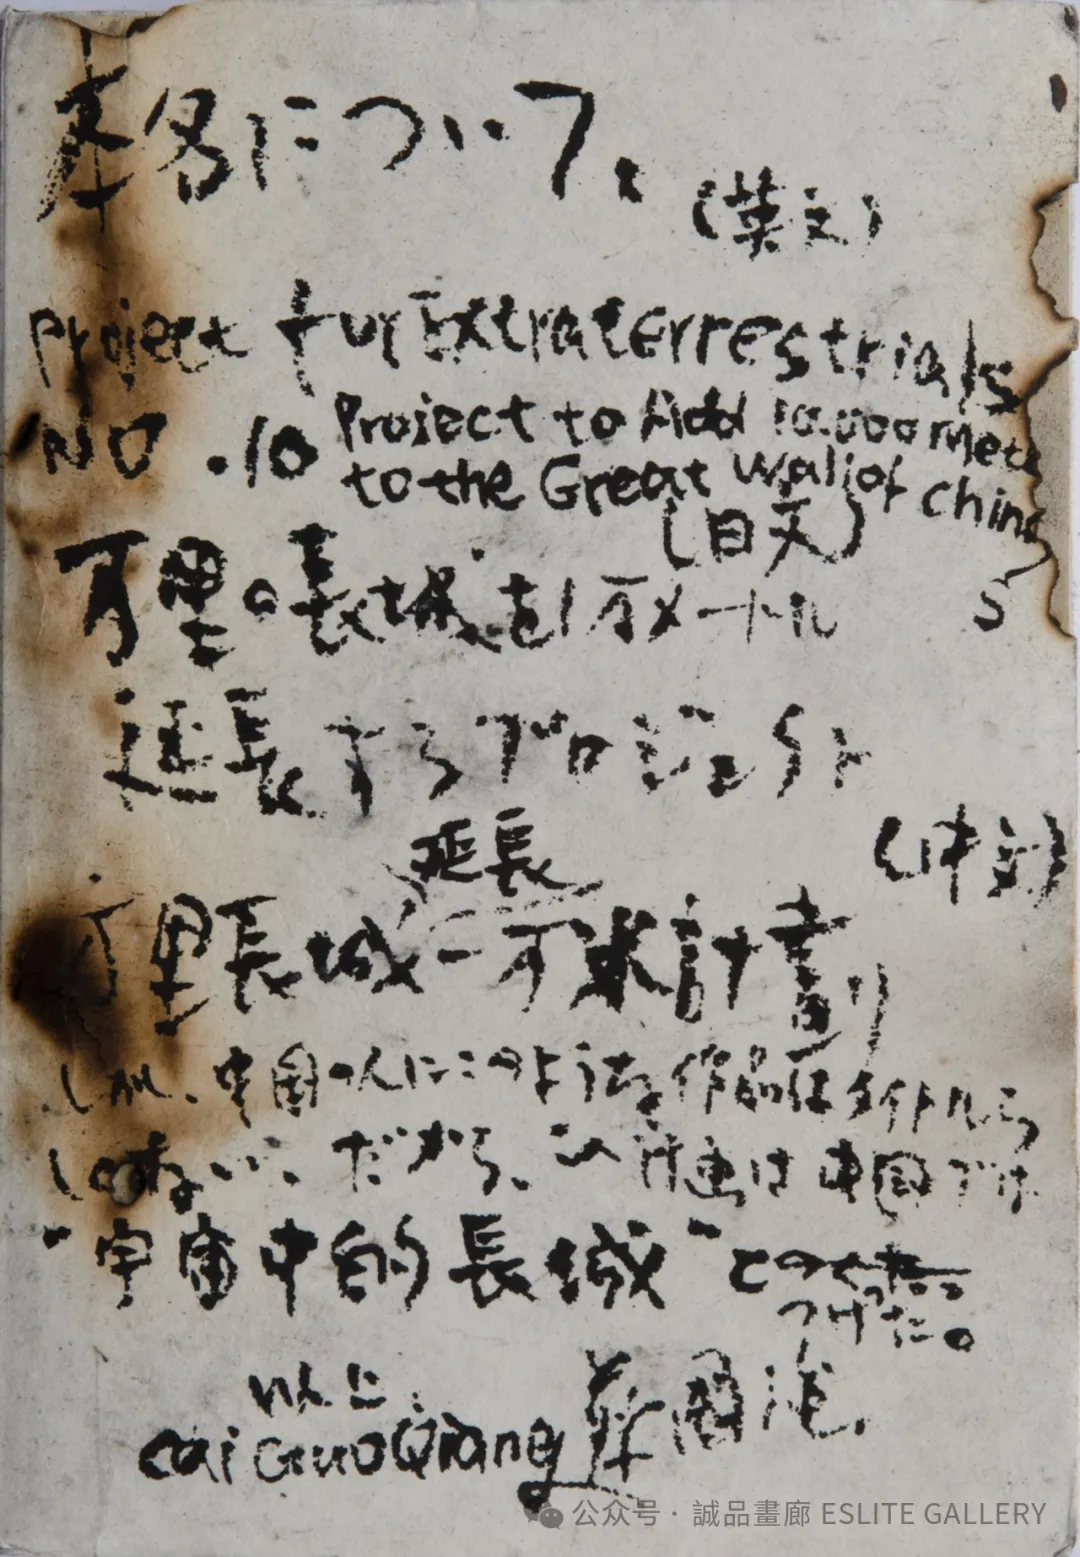 案名について、
(英文)
Project für Extraterrestrials
NO.10 Project to Add 10.000 Mete
to the Great Wall of China
S
(日文)
万里の長城を1万メートル
延長するプロジェクト
(中文)
延長
万里長城一万米計劃
しかし、中国の人にこのような作品はタイトルら
しくない、だから、この計画は中国では
"宇宙中的長城"との
つけた。
以上、
cai GuoQiang 蔡國强
公众号·誠品畫廊 ESLITE GALLERY